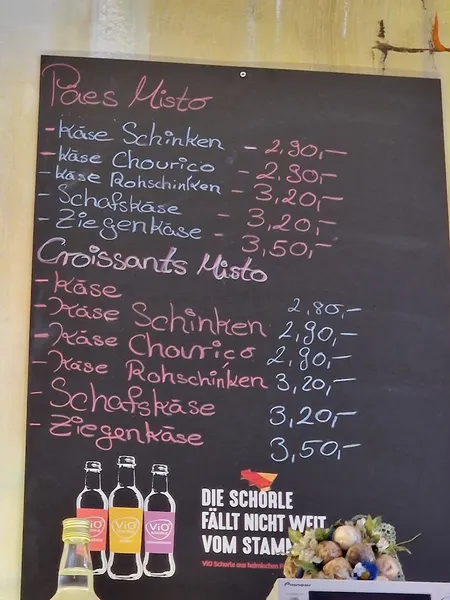 Páes Misto
- Käse Schinken - 2,90,-
- Käse Chourico - 2,90,-
- Käse Rohschinken - 3,20,-
- Schafskäse - 3,20,-
- Ziegenkäse - 3,50,-
Croissants Misto
- Käse 2,80,-
- Käse Schinken 2,90,-
- Käse Chouriço 2,90,-
- Käse Rohschinken 3,20,-
- Schafskäse 3,20,-
- Ziegenkäse 3,50,-
ViO ViO ViO
DIE SCHORLE
FÄLLT NICHT WEIT
VOM STAMM
ViO Schorle aus heimischen
Pioneer